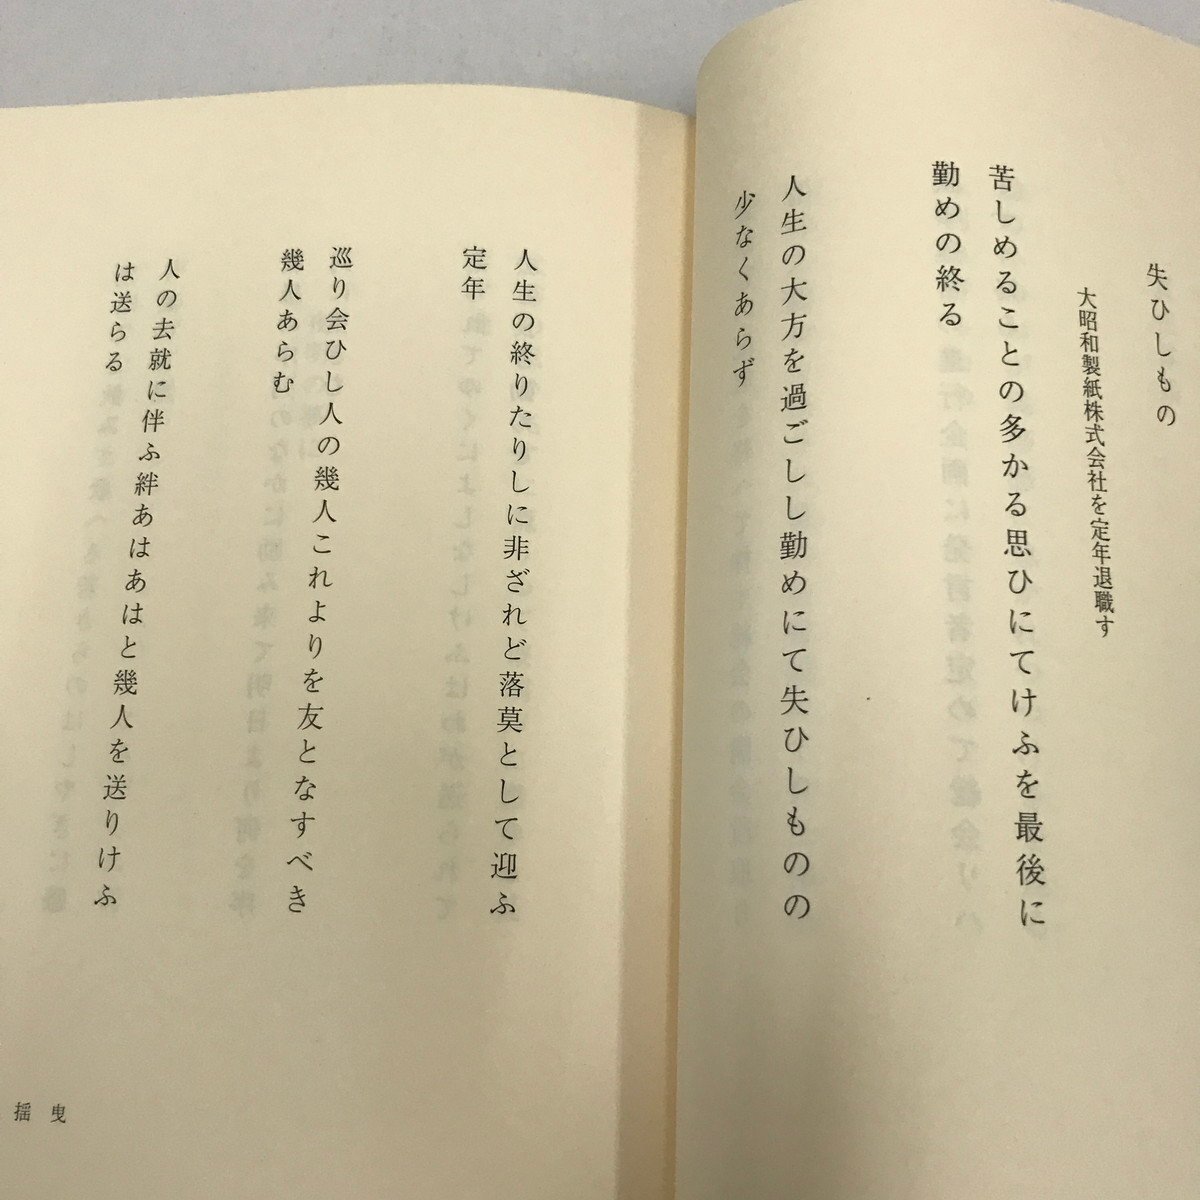 失ひしもの
大昭和製紙株式会社を定年退職す
苦しめることの多かる思ひにてけふを最後に
勤めの終る
人生の大方を過ごしし勤めにて失ひしものの
少なくあらず
人生の終りたりしに非ざれど落莫として迎ふ
定年
巡り会ひし人の幾人これよりを友となすべき
幾人あらむ
人の去就に伴ふ絆あはあはと幾人を送りけふ
は送らる
揺曳